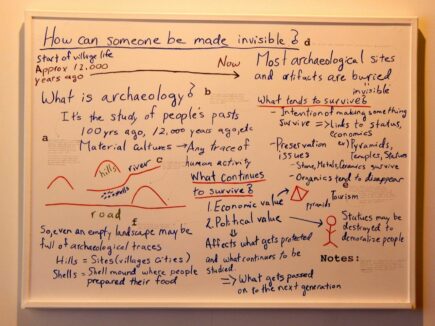 How can someone be made invisible?
d
Start of village life
Approx 12,000
years ago
Now
Most archaeological sites
and artifacts are buried
invisible
What is archaeology?
b
It's the study of people's pasts
100 yrs ago, 12,000 years ago, etc
Material cultures → Any trace of
human activity
a
c
hills
river
shells
road
f
So, even an empty landscape may be
full of archaeological traces
Hills = Sites (villages cities)
Shells = Shell mound where people
prepared their food
What continues
to survive?
1. Economic value
2. Political value
Affects what gets protected
and what continues to be
studied.
⇒ What gets passed
on to the next generation
What tends to survive?
- Intention of making something
survive ⇒ Links to status,
economies
- Preservation issues
ex) Pyramids,
Temples, Statues
- Stone, Metals, Ceramics survive
- Organics tend to disappear
e
Tourism
pyramids
Statues may be
destroyed to
demoralize people
Notes: